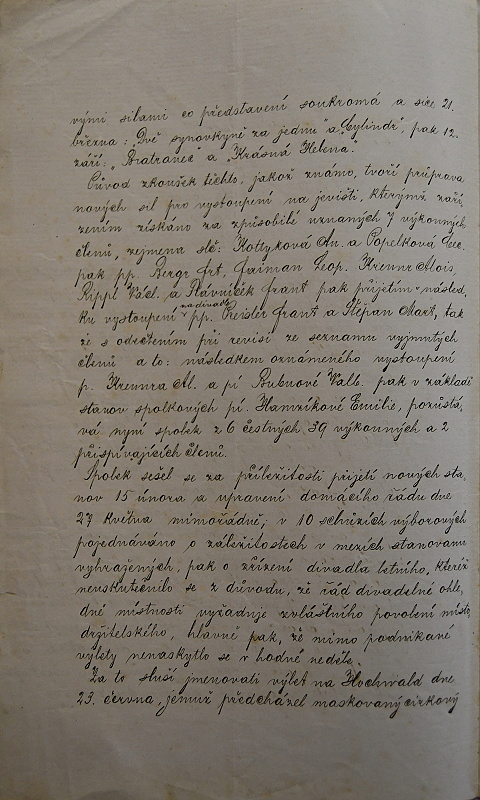 vými silami co představení soukromá a sice 21.
března: "Dvě synovkyně za jednu" a "Cylindr", pak 12.
září: "Bratranec" a "Krásná Helena".
Původ zkoušek těchto, jakož známo, tvoří průprava
nových sil pro vystoupení na jevišti, kterýmž zaří-
zením získáno za způsobilé uznaných 7 výkonných
členů, zejmena slč: Kottyková An. a Popelková Cec.
pak pp. Bergr Frt, Faiman Leop. Krennr Alois,
Rippl Václ. a Plávníček Frant pak přijetím násled-
ku vystoupení na divadle pp. Preisler Frant a Štěpán Mart, tak
že s odečtením při revisi ze seznamu vyjmutých
členů a to: následkem oznámeného vystoupení
p. Krennra Al. a pí Bubnové Valb. pak v základě
stanov spolkových pí. Hamzíkové Emilie, pozůstá-
vá nyní spolek z 6 čestných, 39 výkonných a 2
přispívajících členů.
Spolek sešel se za příležitosti přijetí nových sta-
nov 15 února a upravení domácího řádu dne
27 května mimořádně; v 10 schůzích výborových
pojednáváno o záležitostech v mezích stanovami
vyhrazených, pak o zřízení divadla letního, kteréž
neuskutečnilo se z důvodu, že řád divadelné ohle-
dně místnosti vyžaduje zvláštního povolení místo-
držitelského, hlavně pak, že mimo podnikané
výlety nenaskytlo se v hodné neděle.
Za to sluší jmenovati výlet na Hochwald dne
23. června, jemuž předcházel maskovaný cirkový